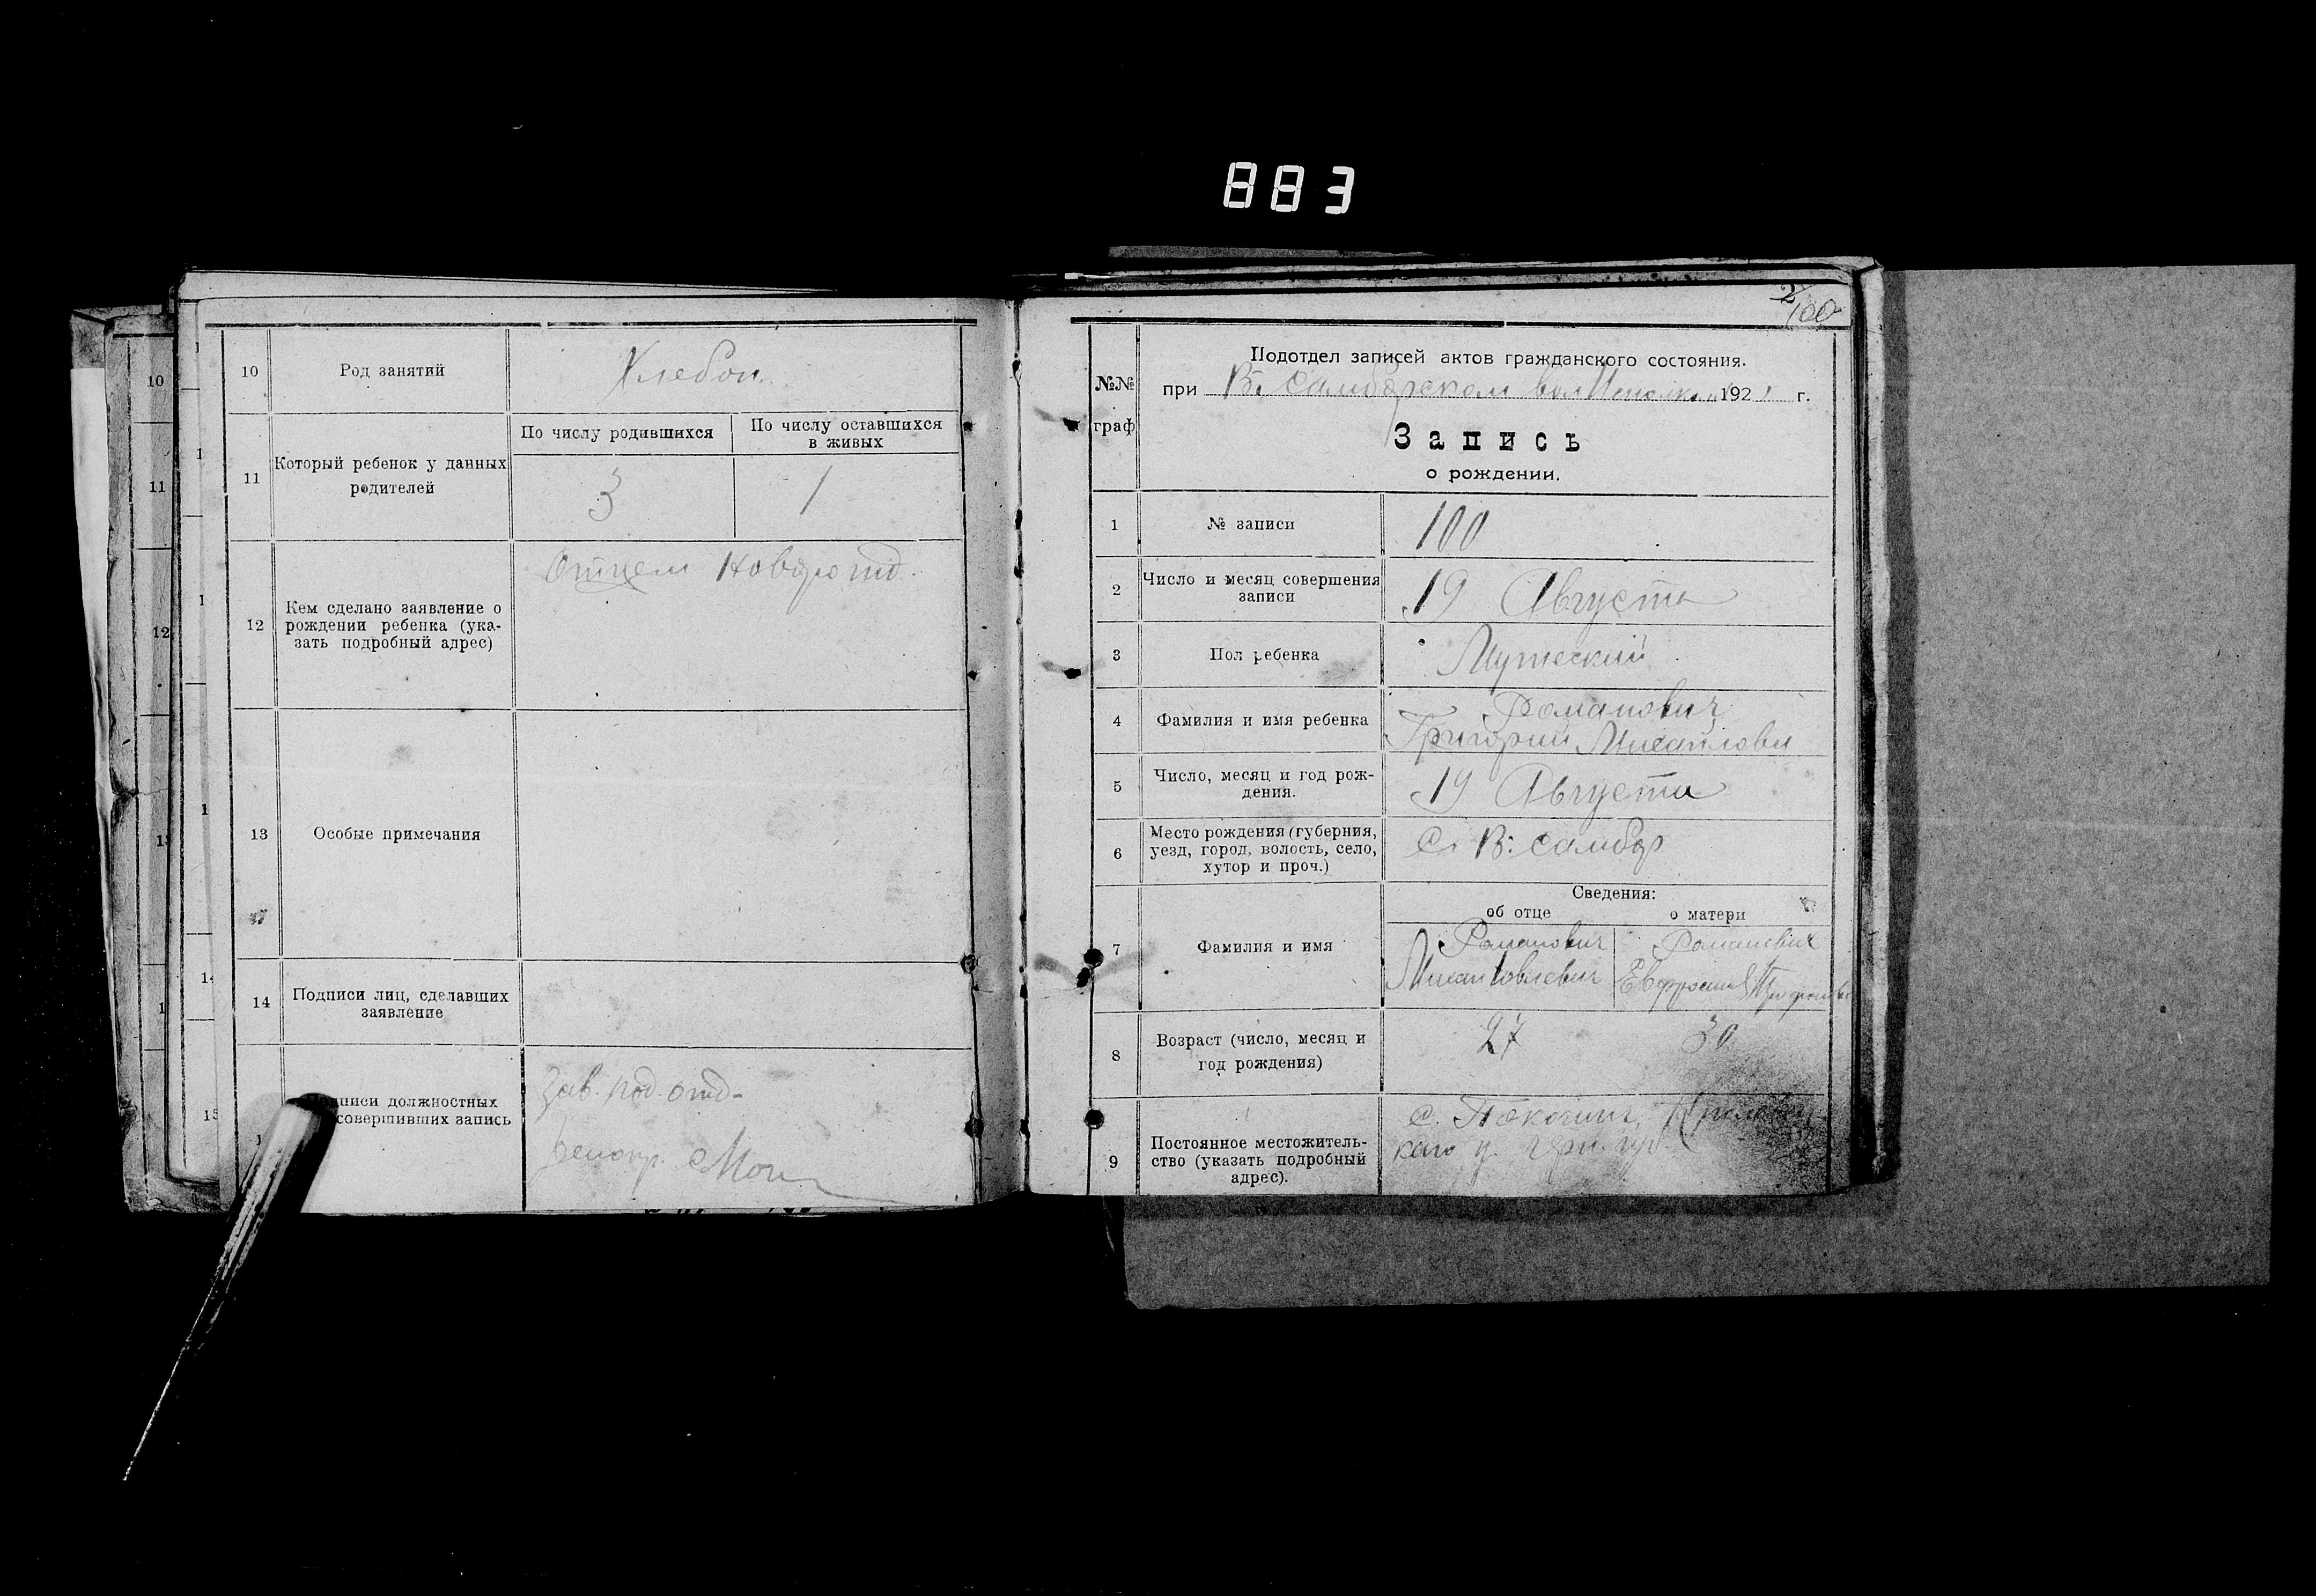 883
10
Род занятий
Хлебоп.
11
Который ребенок у данных
родителей
По числу родившихся
По числу оставшихся
в живых
3
1
12
Кем сделано заявление о
рождении ребенка (ука-
зать подробный адрес)
Отцем
13
Особые примечания
14
Подписи лиц, сделавших
заявление
должностных
совершивших запись
Зав. под. отд-
10
11
12
15
2/100
№№
граф
Подотдел записей актов гражданского состояния.
при В: Самборском 1921 г.
Запись
о рождении.
1
№ записи
100
2
Число и месяц совершения
записи
19 Августа
3
Пол ребенка
Мужеский
4
Фамилия и имя ребенка
Романович
Григорий Михайлович
5
Число, месяц и год рож-
дения.
19 Августа
6
Место рождения (губерния,
уезд, город, волость, село,
хутор и проч.)
С. В: Самбор
Сведения:
об отце
о матери
7
Фамилия и имя
Романович
Романович
8
Возраст (число, месяц и
год рождения)
27
30
9
Постоянное местожитель-
ство (указать подробный
адрес).
с.